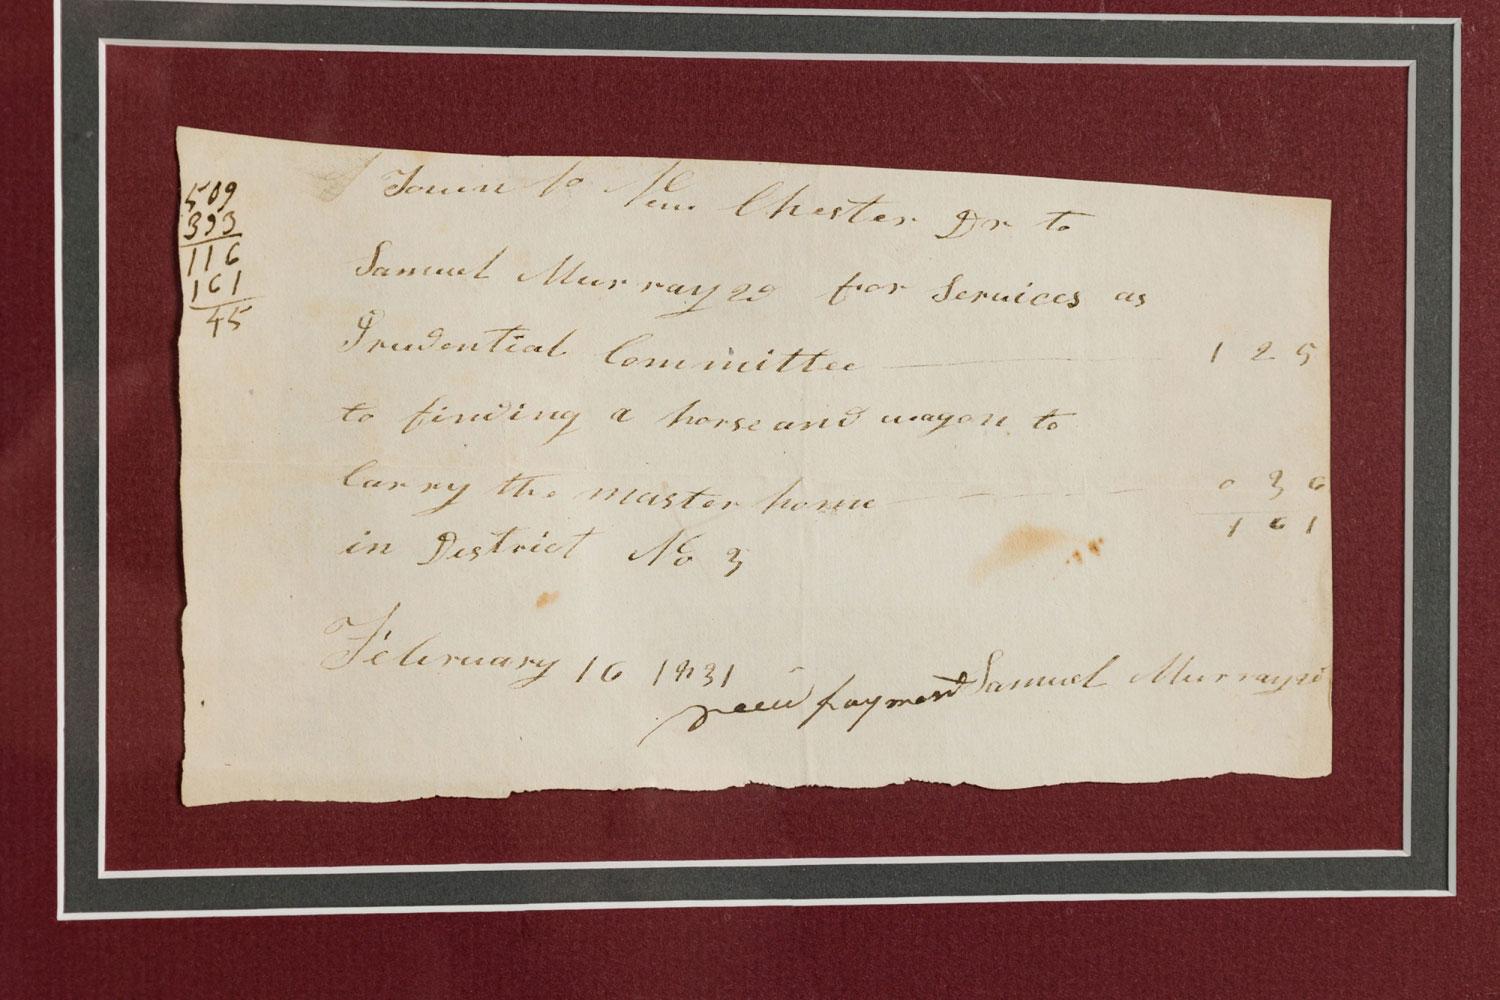 509
393
116
161
45
Town to New Chester Dr to
Samuel Murray 2d for Services as
Prudential Committee 1 25
to finding a horse and wagon to
Carry the master home 0 36
1 61
in District No 3
February 16 1831
recd payment Samuel Murray 2d